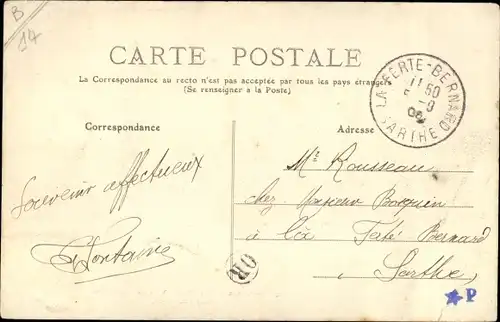 B
14
CARTE POSTALE
La Correspondance au recto n'est pas acceptée par tous les pays étrangers
(Se renseigner à la Poste)
LA FERTE-BERNARD
11 50
SARTHE
Correspondance
Adresse
Souvenir affectueux
Mr Rousseau
chez
à la Bernard
Sarthe
OR
P